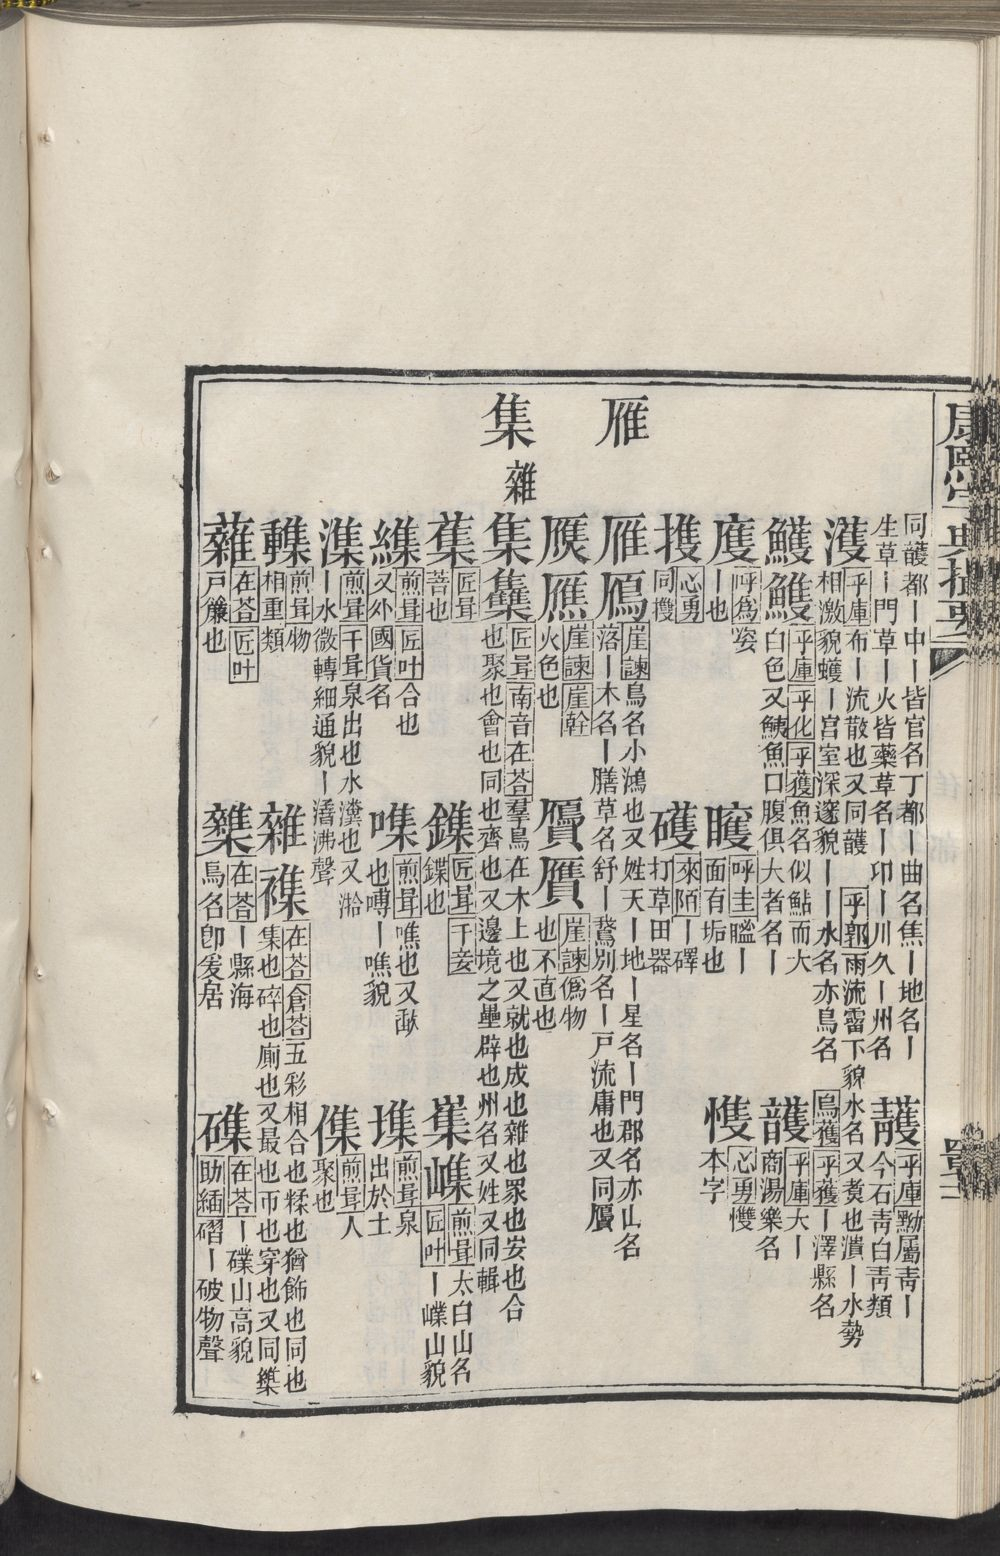 康熙字典撮要
雁
集
雜
同護都丨中丨皆官名丁都丨曲名焦丨地名丨
生草丨門草丨火皆藥草名丨印丨川久丨州名
頀乎庫黝屬靑丨
今石靑白靑類
濩乎庫布丨流散也又同護乎郭雨流霤下貌水名又煑也潰丨水勢
相激貌蠖丨宮室深邃貌丨丨水名亦鳥名烏獲乎獲丨澤縣名
鱯鸌乎庫乎化乎獲魚名似鮎而大
白色又鮧魚口腹俱大者名丨
頀乎庫大丨
商湯樂名
䧼呼爲姿
丨也
矆呼圭䁝丨
面有垢也
愯心勇㦼
本字
㨦心勇
同㩳
䨥來陌丨礋
打草田器
雁鴈崖諫鳥名小鴻也又姓天丨地丨星名丨門郡名亦山名
落丨木名丨膳草名舒丨鶩別名丨戸流庸也又同贗
鴈𤋮崖諫崖𠏉
火色也
贋贗崖諫僞物
也不直也
集雧匠咠南音在荅羣鳥在木上也又就也成也雜也眾也安也合
也聚也會也同也齊也又邊境之壘辟也州名又姓又同輯
蕉匠咠
菩也
鏶匠咠千妾
鍱也
嶲嶫煎咠太白山名
匠叶丨㠎山貌
䌖煎咠匠叶合也
又外國貨名
噍煎咠噍也又歃
也嘃丨噍貌
㙫煎咠泉
出於土
潗煎咠千咠泉出也水㵽也又湁
丨水微轉細通貌丨潝沸聲
㒊煎咠人
聚也
䡽煎咠物
相重類
雜襍在荅倉荅五彩相合也糅也猶飾也同也
集也碎也廁也又最也帀也穿也又同㯿
䕹在荅匠叶
戸簾也
䥕在荅丨縣海
鳥名卽爰居
磼在荅丨礏山高貌
助緬磖丨破物聲